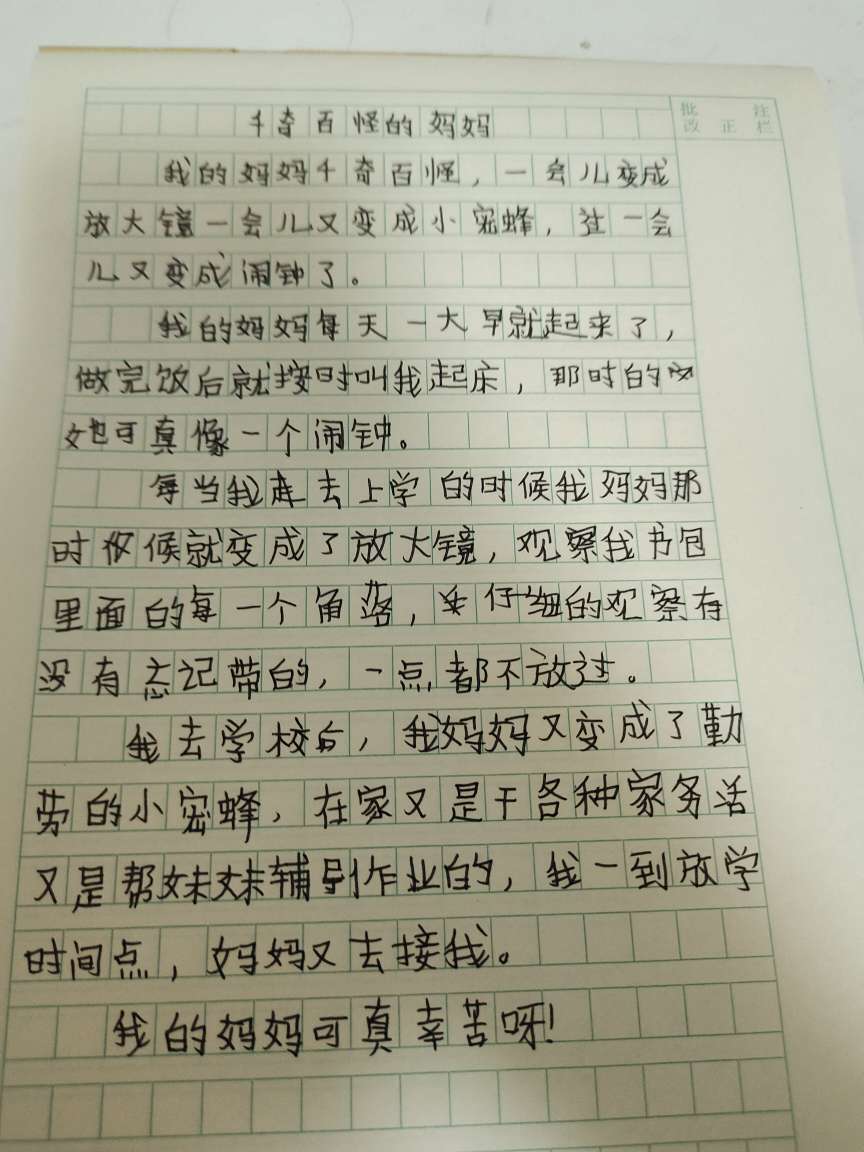 千奇百怪的妈妈
批注
改正栏
我的妈妈千奇百怪，一会儿变成
放大镜一会儿又变成小密蜂，过一会
儿又变成闹钟了。
我的妈妈每天一大早就起来了，
做完饭后就按时叫我起床，那时的
她可真像一个闹钟。
每当我走去上学的时候我妈妈那
时候就变成了放大镜，观察我书包
里面的每一个角落，仔细的观察有
没有忘记带的，一点都不放过。
我去学校后，我妈妈又变成了勤
劳的小密蜂，在家又是干各种家务活
又是帮妹妹辅导作业的，我一到放学
时间点，妈妈又去接我。
我的妈妈可真幸苦呀！